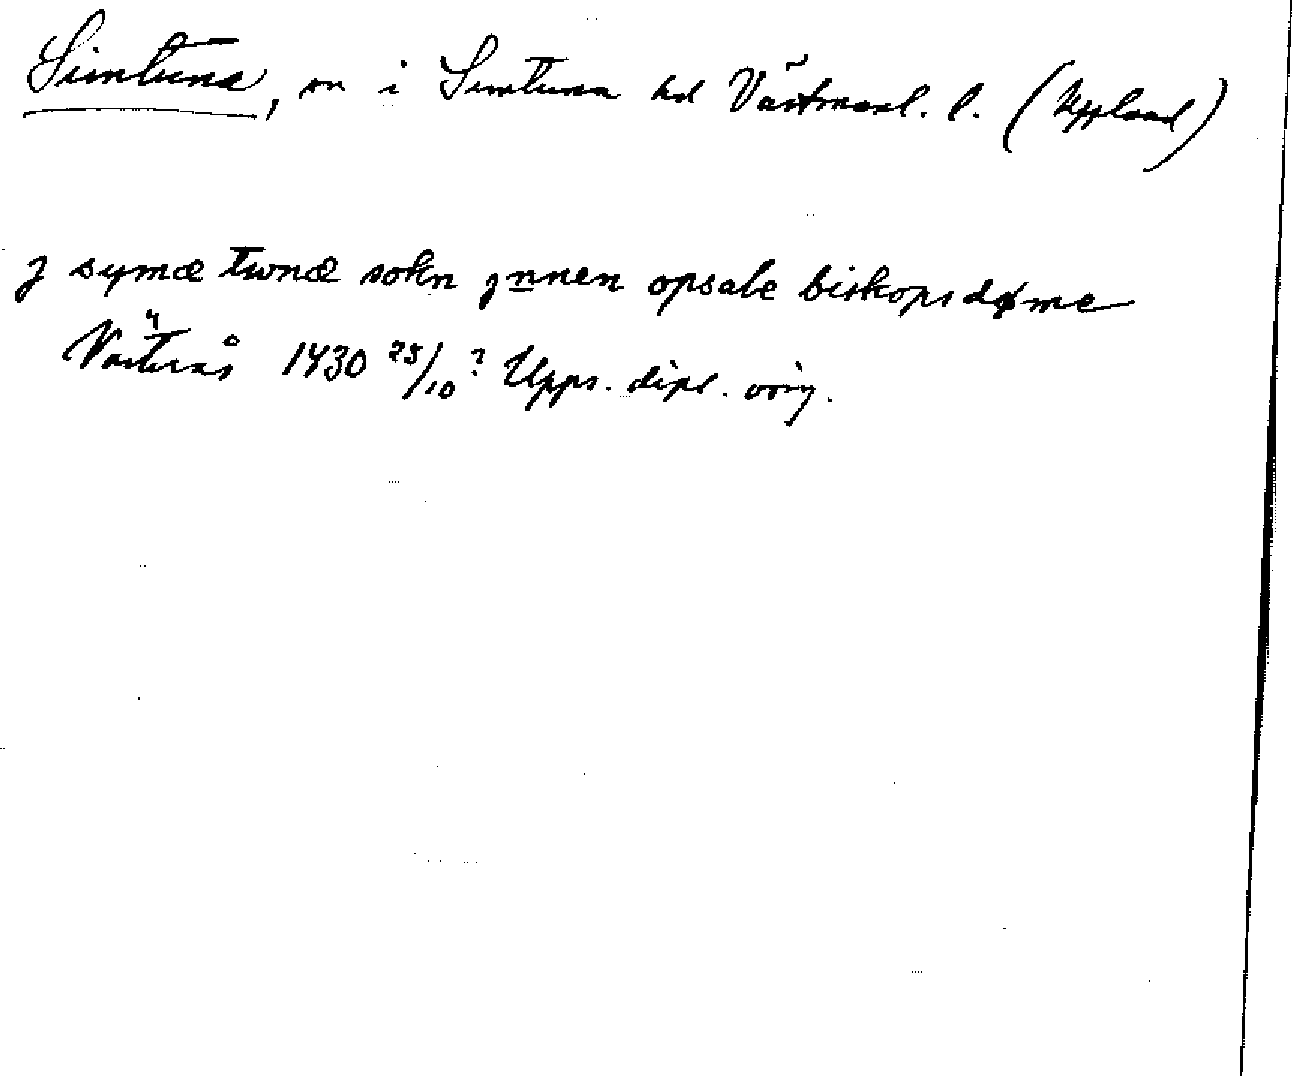 Simtuna, sn i Simtuna hd Västmanl. l. (Uppland)
j symæ twnæ sokn jnnen opsale biskopsdøme
Västerås 1430 25/10? Upps. dipl. orig.